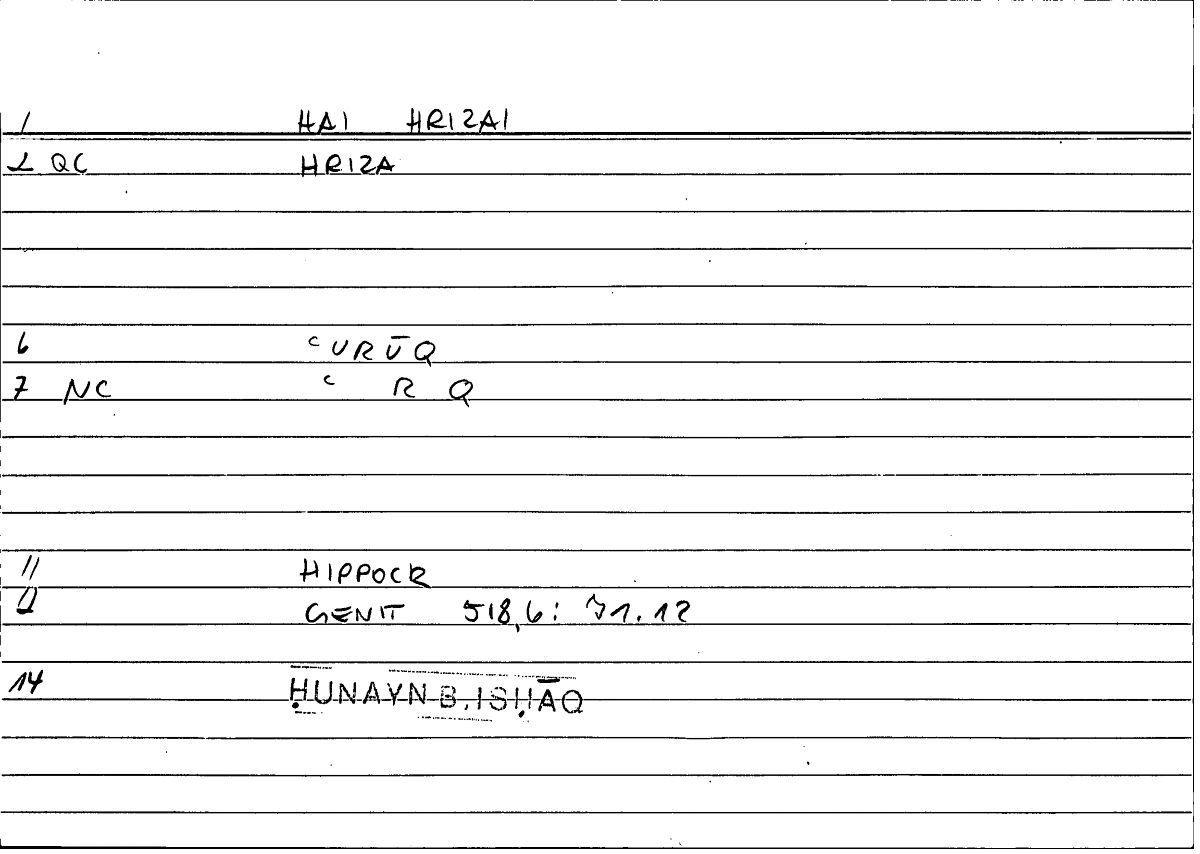 1 HAI HRIZAI
2 QC HRIZA
6 ʿURŪQ
7 NC ʿ R Q
11 HIPPOCR
GENIT 518,6:
14 ḤUNAYN B. ISḤĀQ